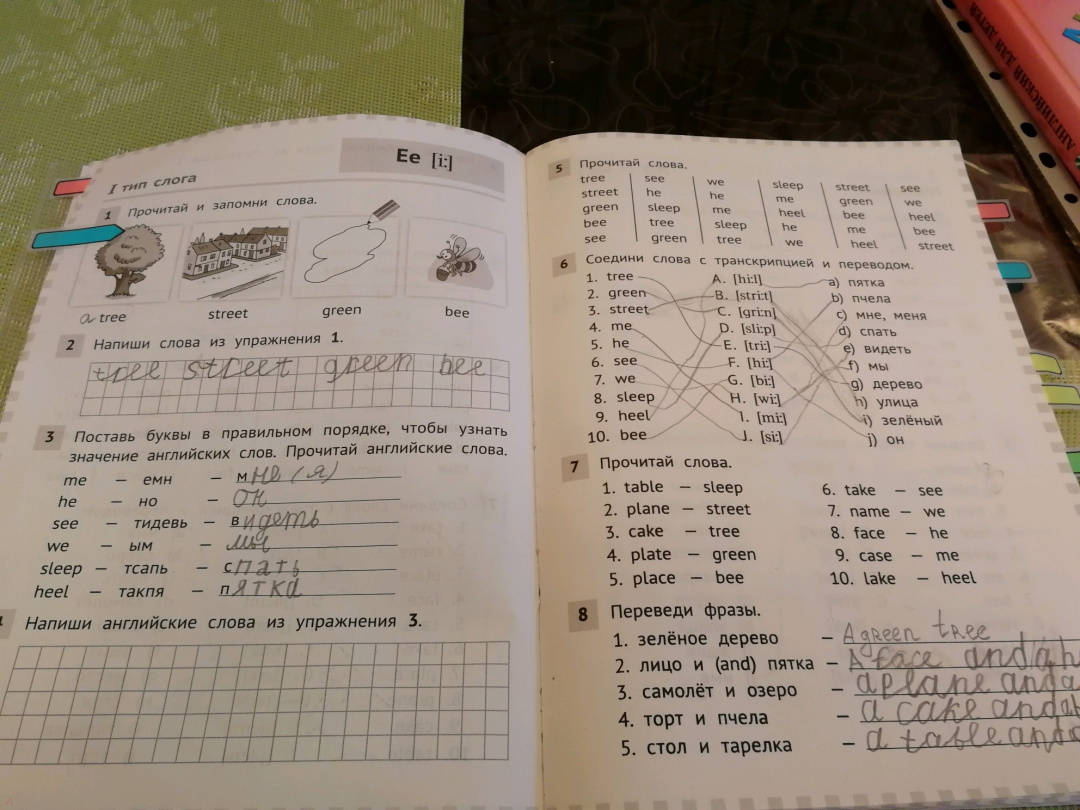 АНГЛИЙСКИЙ ДЛЯ ДЕТЕЙ
I тип слога
Ee [i:]
1 Прочитай и запомни слова.
a tree street green bee
2 Напиши слова из упражнения 1.
tree street green bee
3 Поставь буквы в правильном порядке, чтобы узнать
значение английских слов. Прочитай английские слова.
me – емн – мне (я)
he – но – он
see – тидевь – видеть
we – ым – мы
sleep – тсапь – спать
heel – такпя – пятка
Напиши английские слова из упражнения 3.
5 Прочитай слова.
tree see we sleep street see
street he he me green we
green sleep me heel bee heel
bee tree sleep he me bee
see green tree we heel street
6 Соедини слова с транскрипцией и переводом.
1. tree A. [hi:l] a) пятка
2. green B. [stri:t] b) пчела
3. street C. [gri:n] c) мне, меня
4. me D. [sli:p] d) спать
5. he E. [tri:] e) видеть
6. see F. [hi:] f) мы
7. we G. [bi:] g) дерево
8. sleep H. [wi:] h) улица
9. heel I. [mi:] i) зелёный
10. bee J. [si:] j) он
7 Прочитай слова.
1. table – sleep 6. take – see
2. plane – street 7. name – we
3. cake – tree 8. face – he
4. plate – green 9. case – me
5. place – bee 10. lake – heel
8 Переведи фразы.
1. зелёное дерево – A green tree
2. лицо и (and) пятка – A face and a he
3. самолёт и озеро – a plane and a
4. торт и пчела – a cake and a b
5. стол и тарелка – a table and a